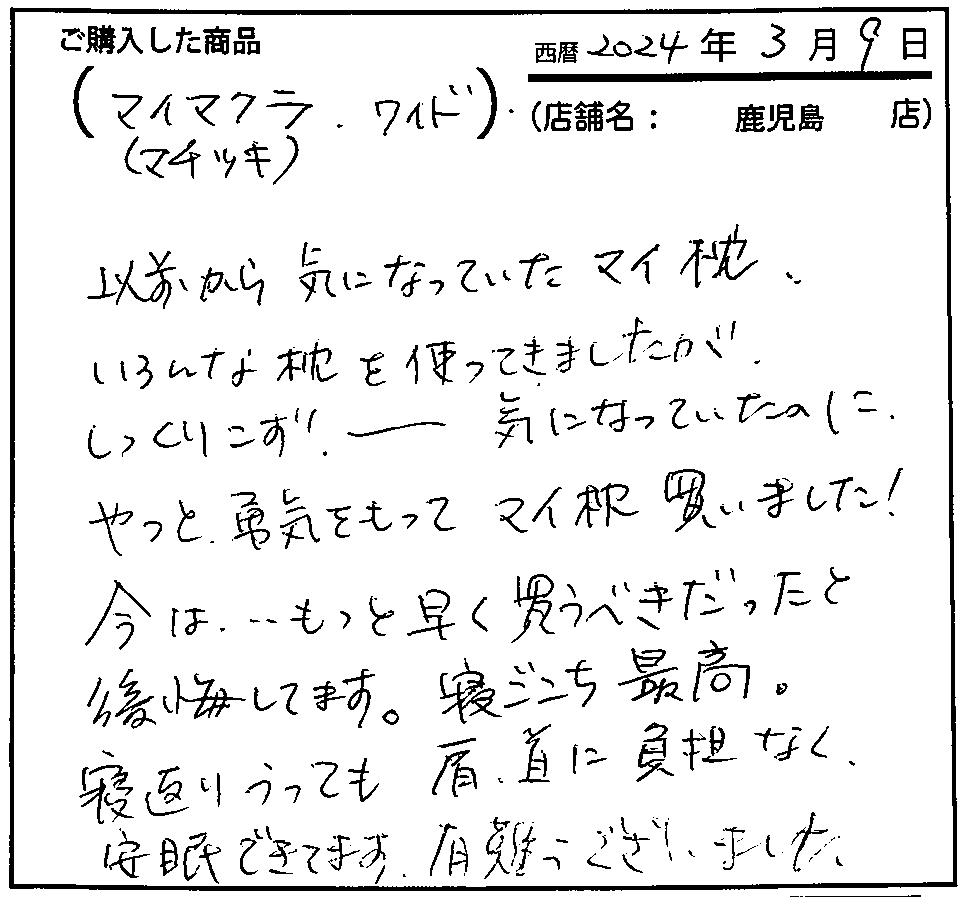 ご購入した商品
西暦 2024 年 3 月 9 日
(マイマクラ．ワイド)．
(店舗名： 鹿児島 店)
(マチツキ)
以前から気になっていたマイ枕、
いろんな枕を使ってきましたが、
しっくりこず!．── 気になっていたのに、
やっと、勇気をもってマイ枕買いました!
今は、‥もっと早く買うべきだったと
後悔してます。寝ごこち最高。
寝返りうっても肩、首に負担なく、
安眠できてます。有難うございました。